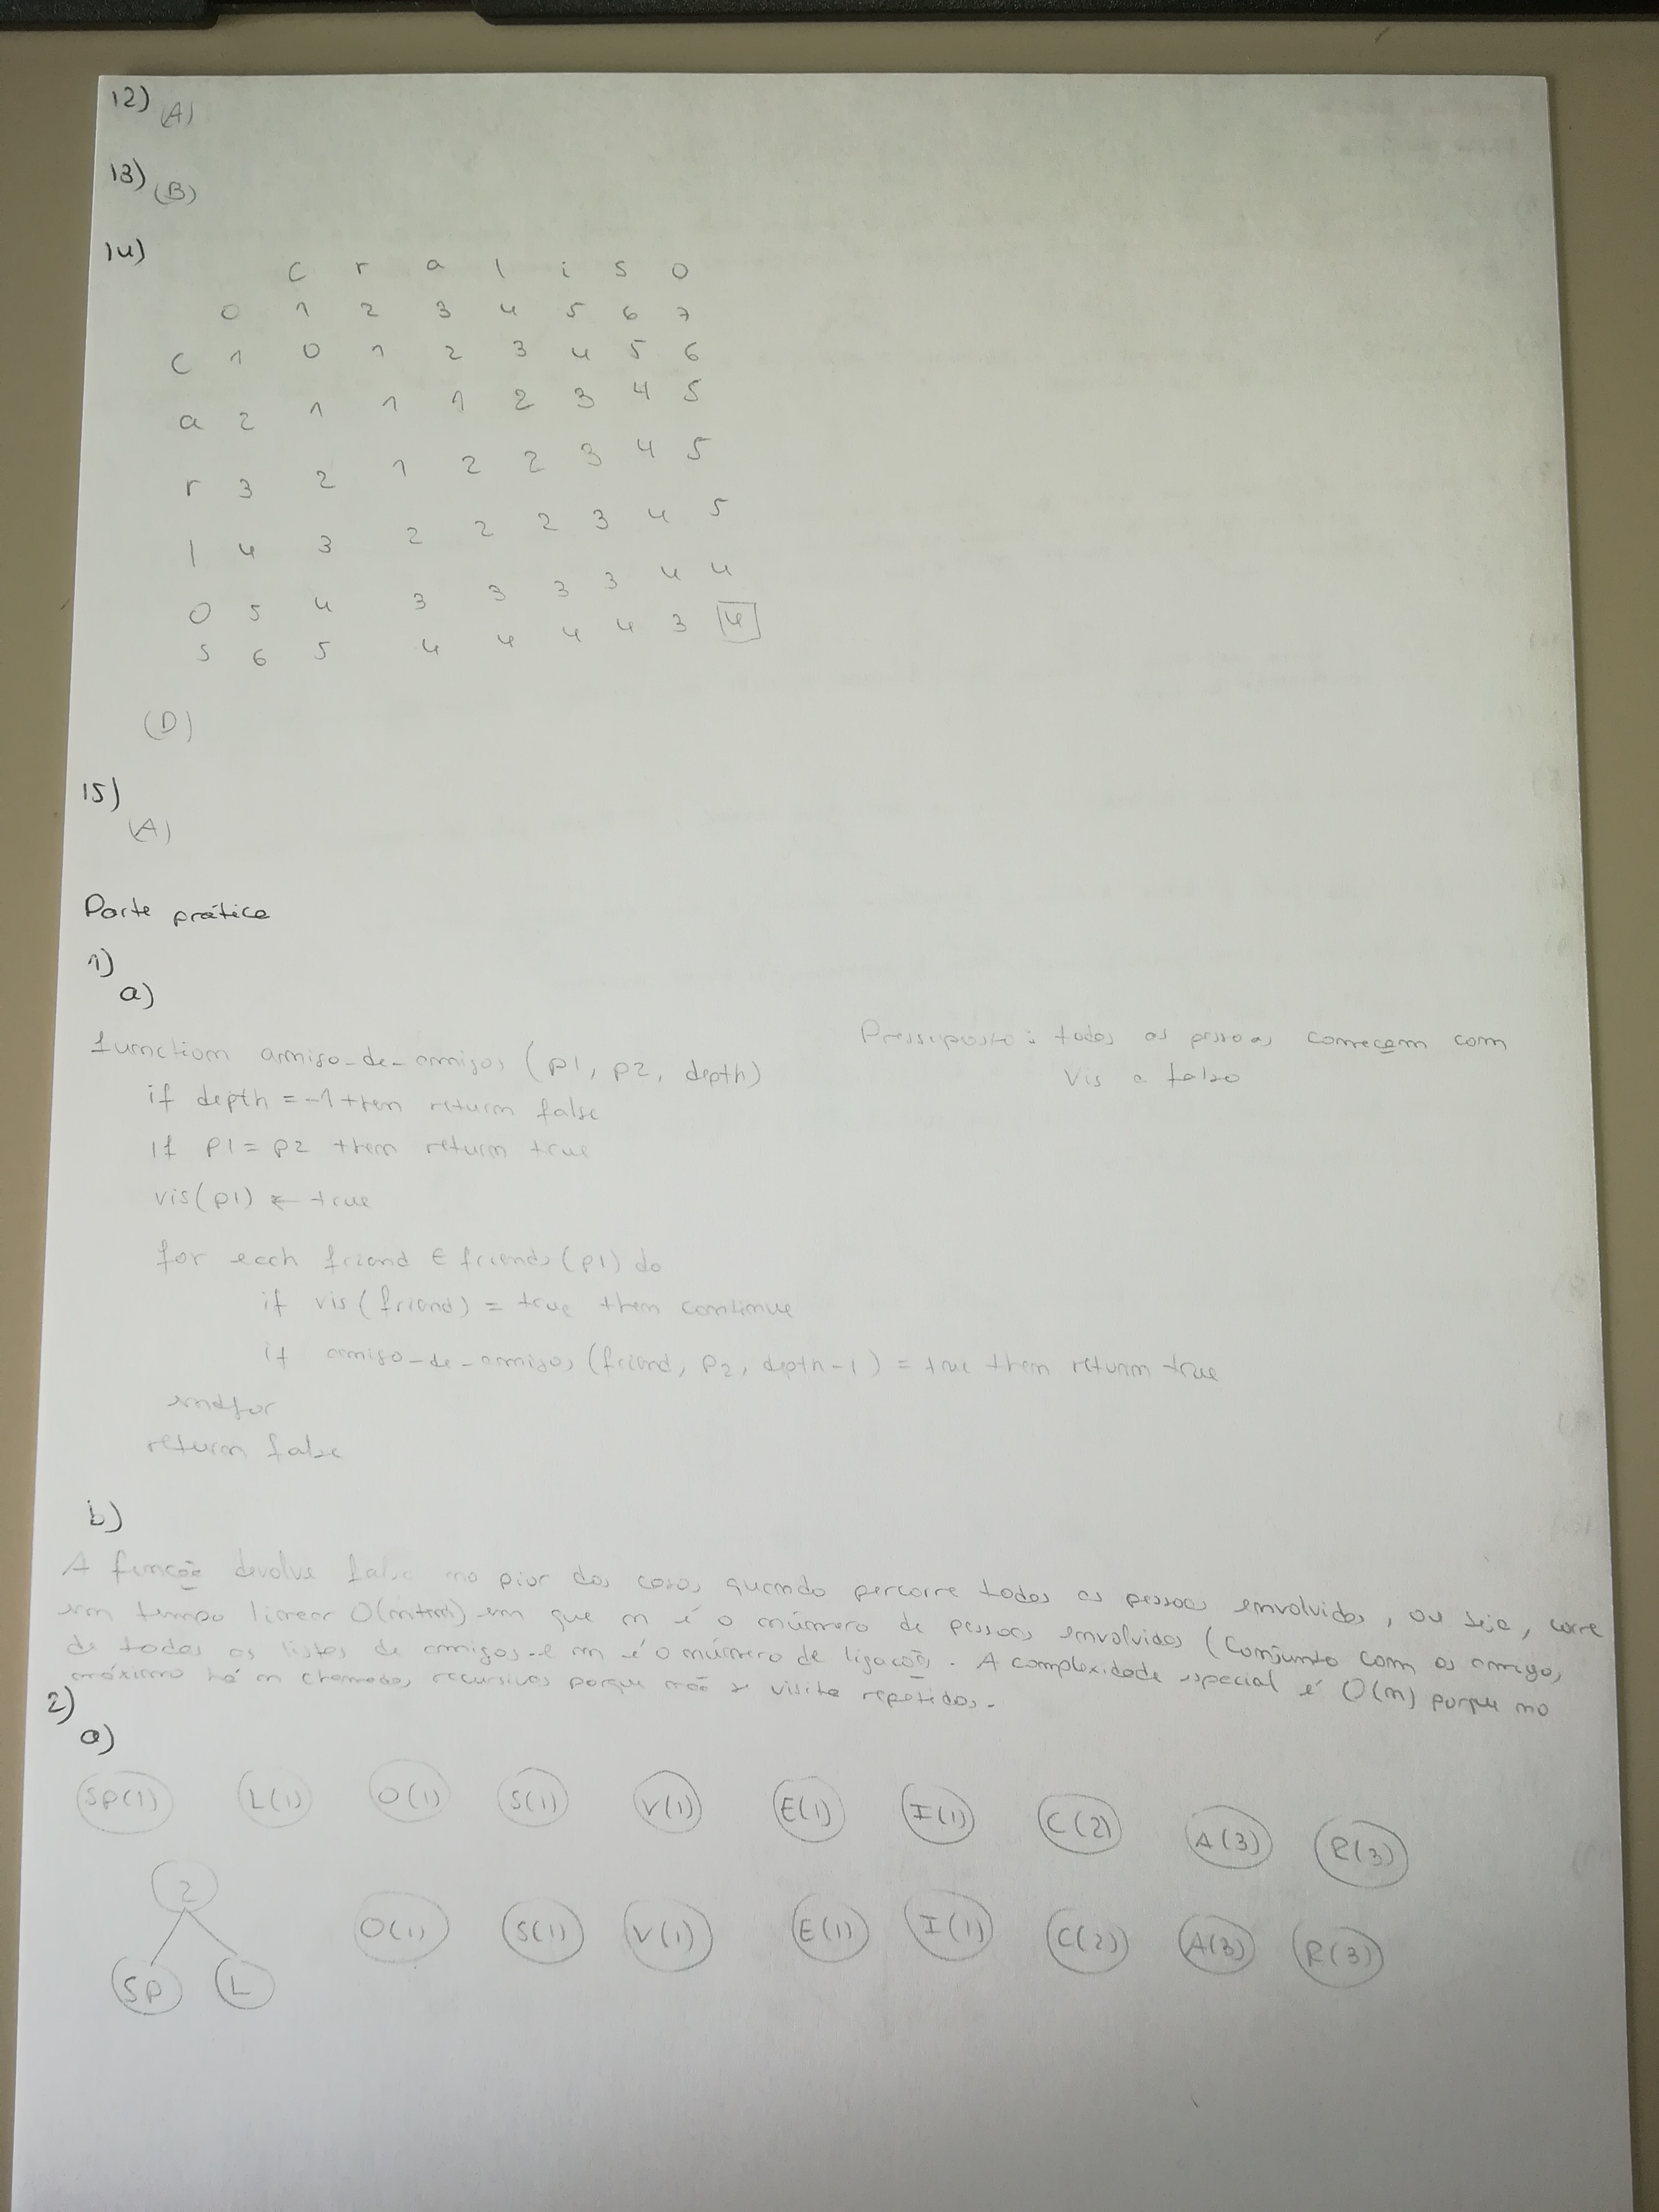 12) (A)
13) (B)
14)
C r a l i s o
0 1 2 3 4 5 6 7
C 1 0 1 2 3 4 5 6
a 2 1 1 1 2 3 4 5
r 3 2 1 2 2 3 4 5
l 4 3 2 2 2 3 4 5
o 5 4 3 3 3 3 4 4
s 6 5 4 4 4 4 3 4
(D)
15)
(A)
Parte prática
1)
a)
function amigo-de-amigos (p1, p2, depth)
Pressuposto: todas as pessoas começam com
vis a falso
if depth = -1 then return false
if p1 = p2 then return true
vis(p1) ← true
for each friend ∈ friends (p1) do
if vis(friend) = true then continue
if amigo-de-amigos (friend, p2, depth-1) = true then return true
endfor
return false
b)
A função devolve falso no pior dos casos, quando percorre todas as pessoas envolvidas, ou seja, corre
em tempo linear em que n é o número de pessoas envolvidas (conjunto com os amigos,
de todas as listas de amigos e m é o número de ligações. A complexidade espacial é O(n) porque no
máximo há n chamadas recursivas porque não se visita repetidos.
2)
a)
SP(1) L(1) O(1) S(1) V(1) E(1) I(1) C(2) A(3) R(3)
2 O(1) S(1) V(1) E(1) I(1) C(2) A(3) R(3)
SP L